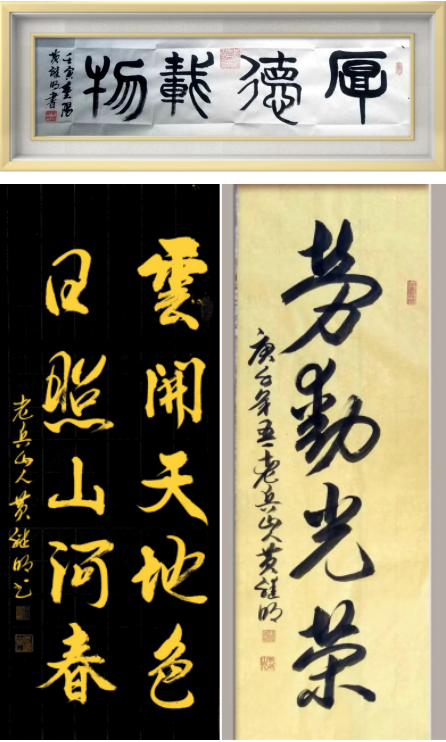 厚德載物
壬寅重陽
黄继明書
雲開天地色
日照山河春
老兵山人黄继明书
勞動光荣
庚子年五一老兵山人黄继明